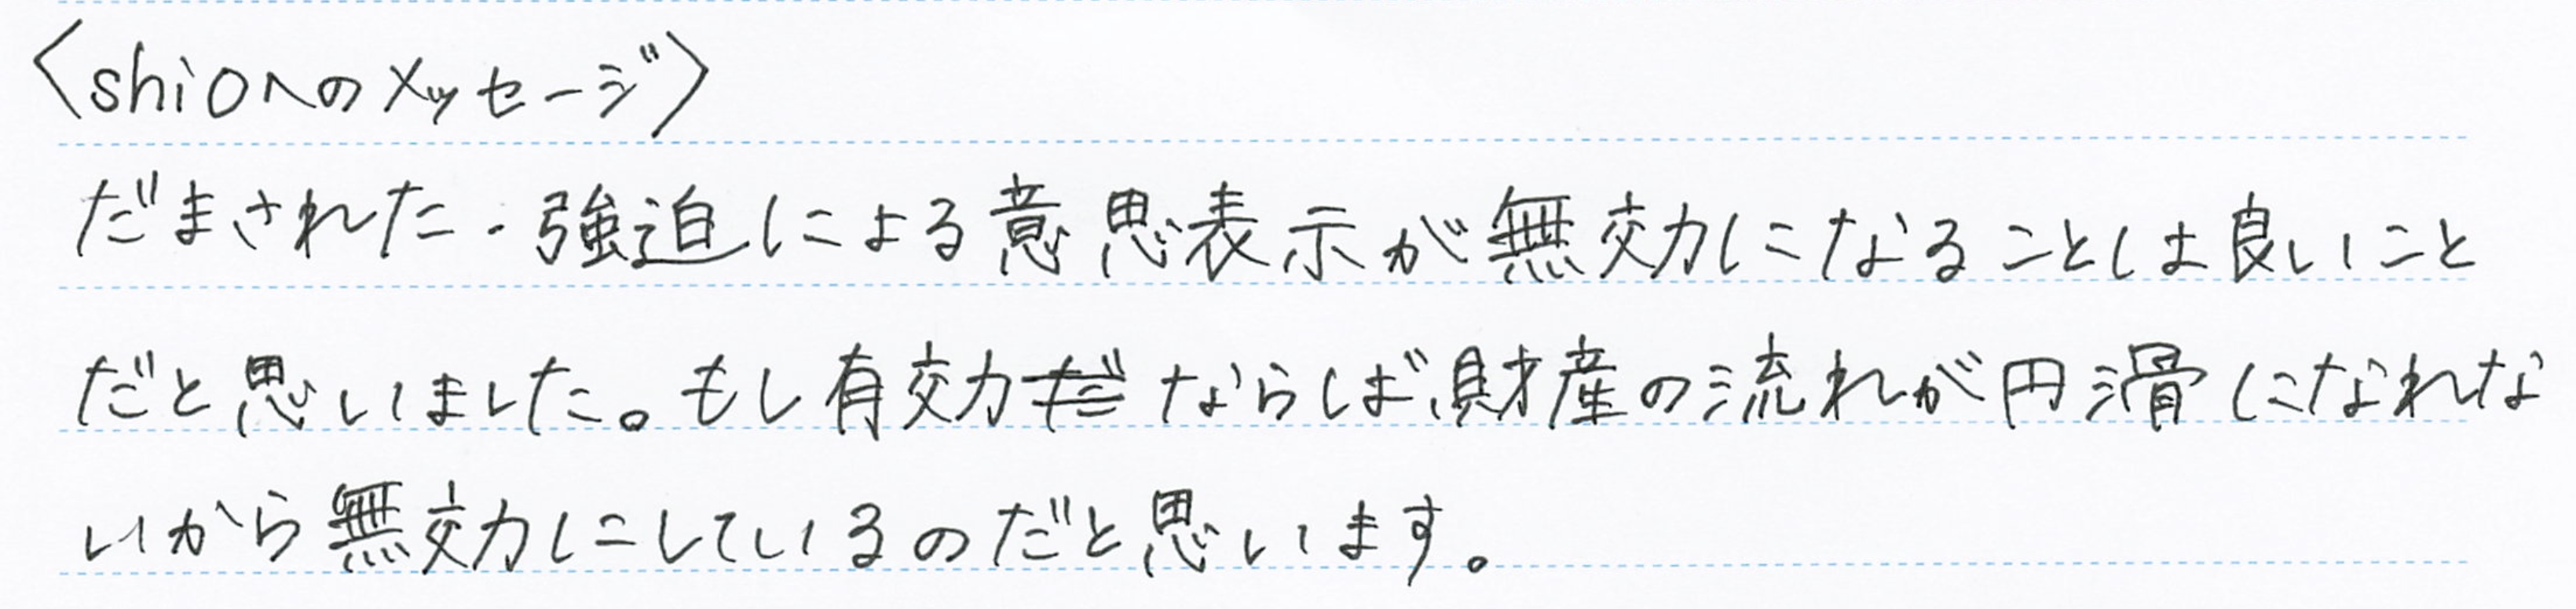 〈shioへのメッセージ〉
だまされた・強迫による意思表示が無効になることは良いこと
だと思いました。もし有効ならば財産の流れが円滑になれな
いから無効にしているのだと思います。